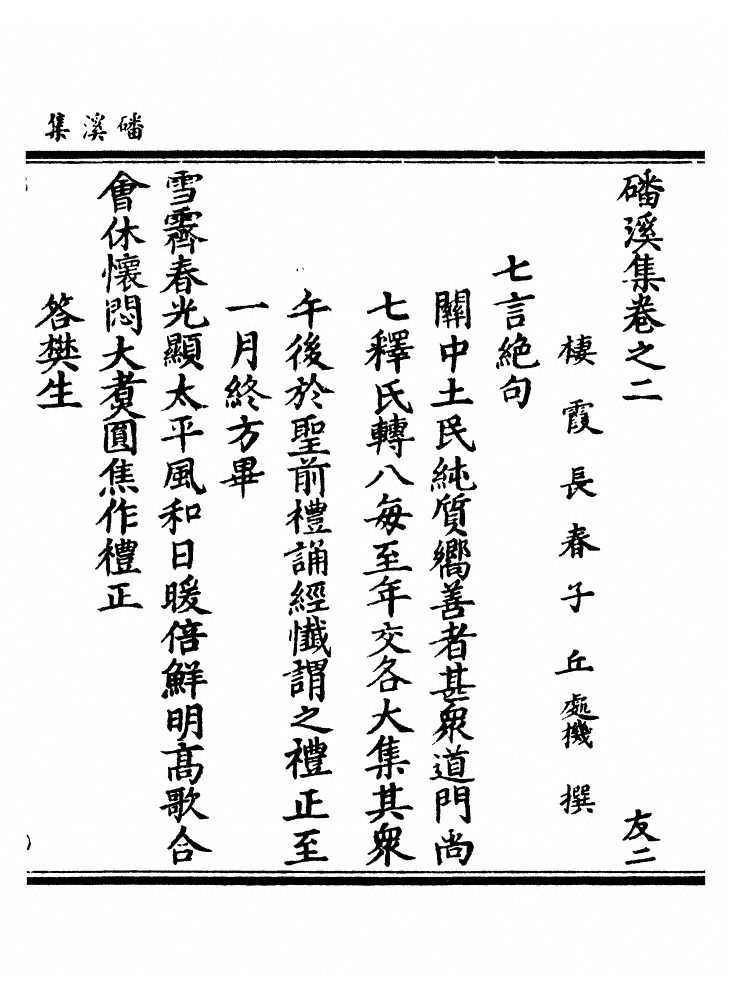 磻溪集
磻溪集卷之二 友二
棲霞長春子丘處機撰
七言絶句
關中土民純質嚮善者甚衆道門尚
七釋氏轉八每至年交各大集其衆
午後於聖前禮誦經懺謂之禮正至
一月終方畢
雪霽春光顯太平風和日暖倍鮮明高歌合
會休懷悶大煑圓焦作禮正
答樊生